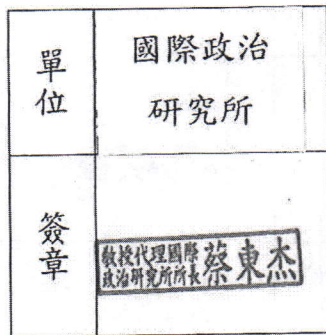 單位
國際政治
研究所
簽章
教授代理國際
政治研究所所長
蔡東杰